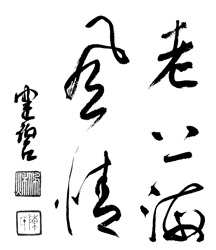 老上海
風情